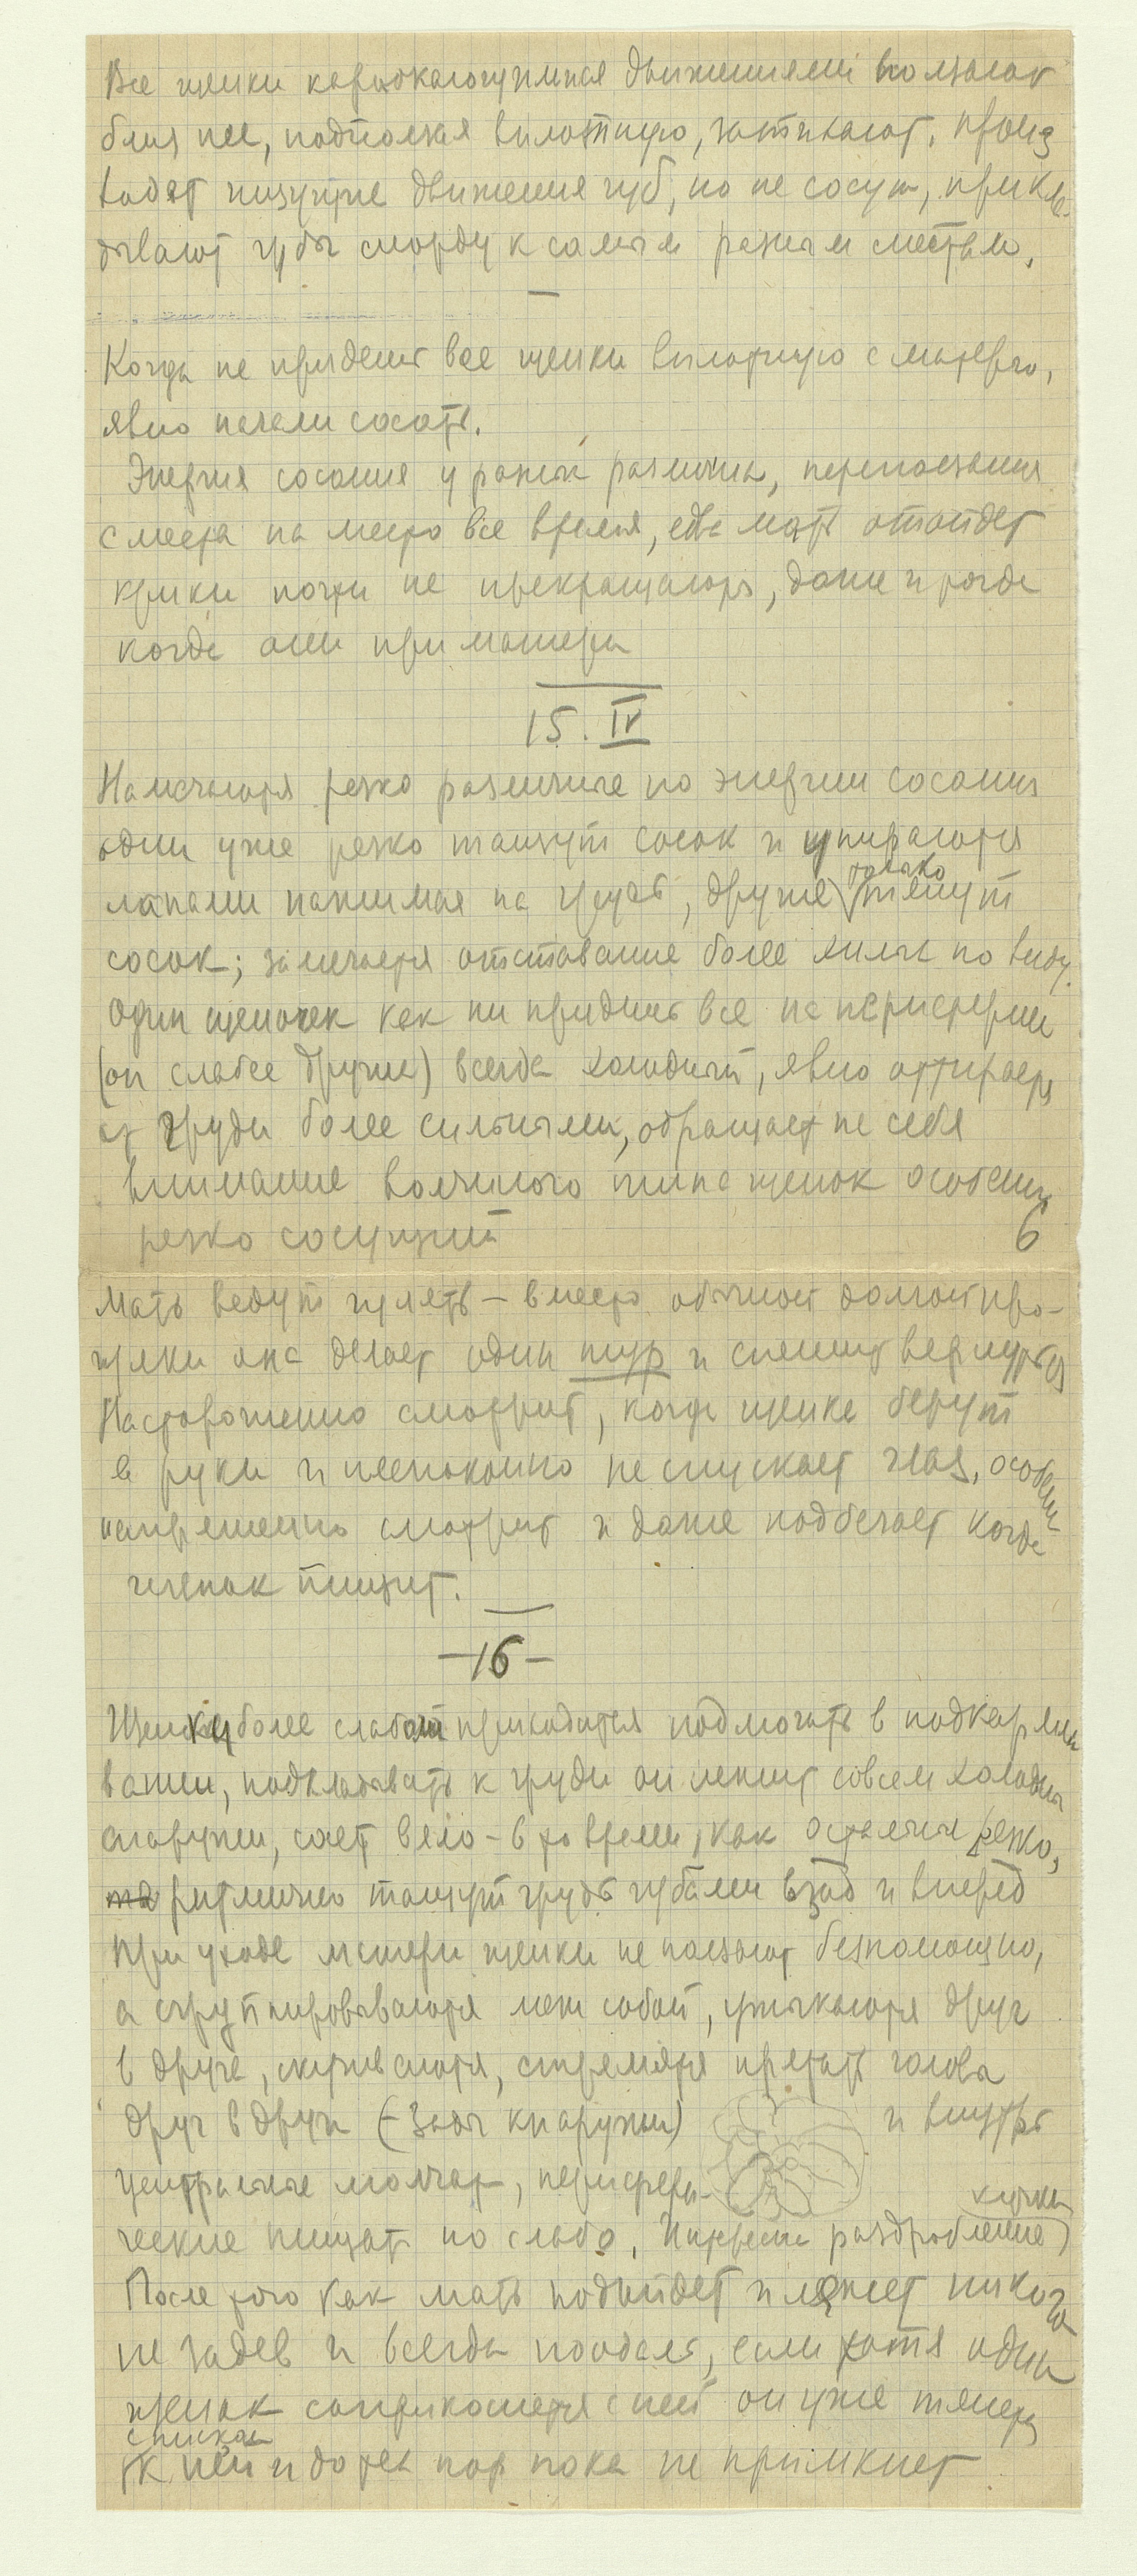 Все щенки карабкающимися движениями ползают
близ нее, подползая вплотную, затихают, произ
водят ищущие движения губ, но не сосут, прикла-
дывают губы морду к самым разным местам.
Когда не придешь все щенки вплотную с матерью,
явно начали сосать.
Энергия сосания у разных различна, переползания
с места на место все время, едва мать отойдет
крики почти не прекращаются, даже и тогда
когда они при матери
15. IV
Намечается резко различие по энергии сосания
одни уже резко тянут сосок и упираются
лапами нажимая на грудь, другие только тянут
сосок; замечается отставание более хилых по виду.
Один щеночек как ни придешь все на периферии
(он слабее других) всегда холодный, явно оттирается
от груди более сильными, обращает на себя
внимание волчьего типа щенок особенно
резко сосущий
6
Мать ведут гулять – вместо обычной долгой про-
гулки она делает один тур и спешит вернуться
Настороженно смотрит, когда щенка берут
в руки и неспокойно не спускает глаз, особенно
напряженно смотрит и даже подбегает когда
щенок пищит.
–16–
Щенку более слабому приходится помогать в подкармли
вании, подкладывать к груди он лежит совсем холодный
снаружи, сосет вяло – в то время, как остальные резко,
ритмично тянут грудь губами взад и вперед
При уходе матери щенки не ползают беспомощно,
а сгруппировываются меж собой, утыкаются друг
в друга, скучиваются, стремятся прятать головы
друг в друга (– зады кнаружи) и внутрь
центральные молчат, перифери-
ческие пищат но слабо. Интересно раздробление кучки)
После того как мать подойдет и ляжет никого
не задев и всегда поодаль, если хотя один
щенок соприкоснется с ней он уже тянется
с писком
к ней и до тех пор пока не примкнет